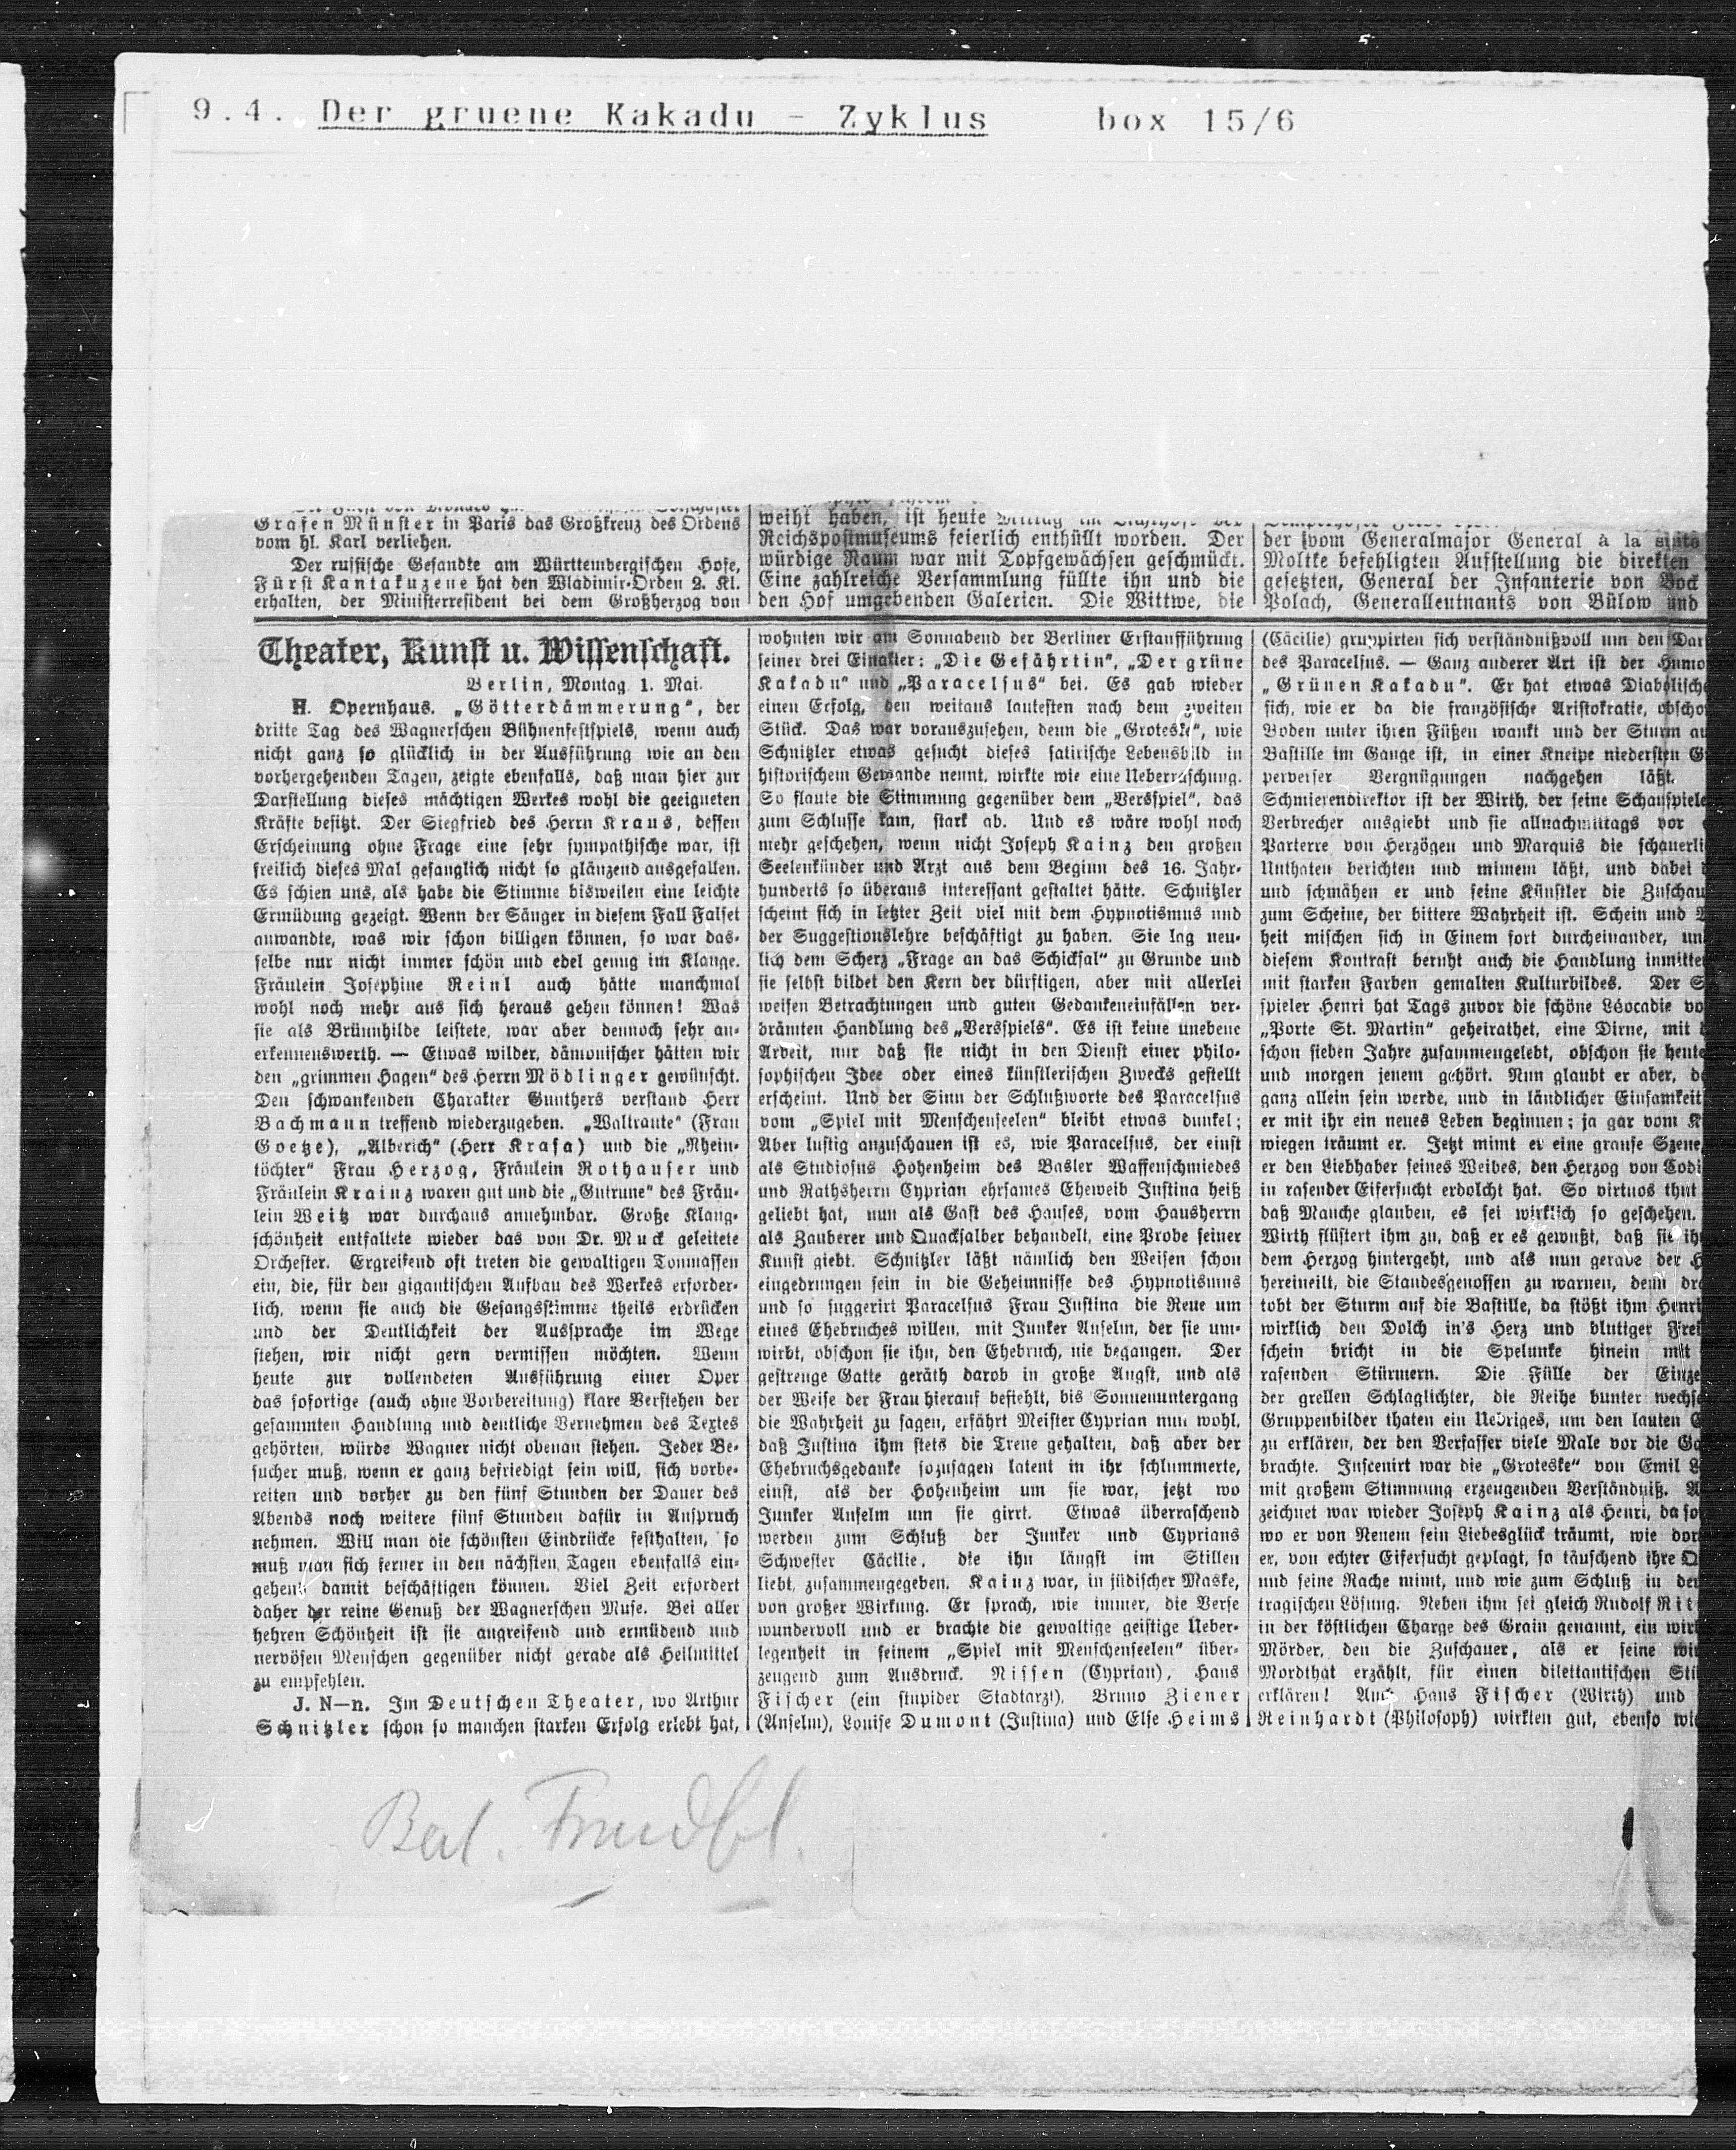 9.4. Der gruene Kakadu - Zyklus box 15/6
Grafen Münster in Paris das Großkreuz des Ordens
vom hl. Karl verliehen.
Der russische Gesandte am Württembergischen Hofe,
Fürst Kantakuzene hat den Wladimir-Orden 2. Kl.
erhalten, der Ministerresident bei dem Großherzog von
Theater, Kunst u. Wissenschaft.
Berlin, Montag 1. Mai.
H. Opernhaus. „Götterdämmerung“, der
dritte Tag des Wagnerschen Bühnenfestspiels, wenn auch
nicht ganz so glücklich in der Ausführung wie an den
vorhergehenden Tagen, zeigte ebenfalls, daß man hier zur
Darstellung dieses mächtigen Werkes wohl die geeigneten
Kräfte besitzt. Der Siegfried des Herrn Kraus, dessen
Erscheinung ohne Frage eine sehr sympathische war, ist
freilich dieses Mal gesanglich nicht so glänzend ausgefallen.
Es schien uns, als habe die Stimme bisweilen eine leichte
Ermüdung gezeigt. Wenn der Sänger in diesem Fall Falset
anwandte, was wir schon billigen können, so war das-
selbe nur nicht immer schön und edel genug im Klange.
Fräulein Josephine Reinl auch hätte manchmal
wohl noch mehr aus sich heraus gehen können! Was
sie als Brünnhilde leistete, war aber dennoch sehr an-
erkennenswerth. — Etwas wilder, dämonischer hätten wir
den „grimmen Hagen“ des Herrn Mödlinger gewünscht.
Den schwankenden Charakter Gunthers verstand Herr
Bachmann treffend wiederzugeben. „Waltraute“ (Frau
Goetze), „Alberich“ (Herr Krasa) und die „Rhein-
töchter“ Frau Herzog, Fräulein Rothauser und
Fräulein Krainz waren gut und die „Gutrune“ des Fräu-
lein Weitz war durchaus annehmbar. Große Klang-
schönheit entfaltete wieder das von Dr. Muck geleitete
Orchester. Ergreifend oft treten die gewaltigen Tonmassen
ein, die, für den gigantischen Aufbau des Werkes erforder-
lich, wenn sie auch die Gesangsstimme theils erdrücken
und der Deutlichkeit der Aussprache im Wege
stehen, wir nicht gern vermissen möchten. Wenn
heute zur vollendeten Ausführung einer Oper
das sofortige (auch ohne Vorbereitung) klare Verstehen der
gesammten Handlung und deutliche Vernehmen des Textes
gehörten, würde Wagner nicht obenan stehen. Jeder Be-
sucher muß, wenn er ganz befriedigt sein will, sich vorbe-
reiten und vorher zu den fünf Stunden der Dauer des
Abends noch weitere fünf Stunden dafür in Anspruch
nehmen. Will man die schönsten Eindrücke festhalten, so
muß man sich ferner in den nächsten Tagen ebenfalls ein-
gehend damit beschäftigen können. Viel Zeit erfordert
daher der reine Genuß der Wagnerschen Muse. Bei aller
hehren Schönheit ist sie angreifend und ermüdend und
nervösen Menschen gegenüber nicht gerade als Heilmittel
zu empfehlen.
J. N—n. Im Deutschen Theater, wo Arthur
Schnitzler schon so manchen starken Erfolg erlebt hat,
weiht haben, ist heute
Reichspostmuseums feierlich enthüllt worden. Der
würdige Raum war mit Topfgewächsen geschmückt.
Eine zahlreiche Versammlung füllte ihn und die
den Hof umgebenden Galerien. Die Wittwe, die
wohnten wir am Sonnabend der Berliner Erstaufführung
seiner drei Einakter: „Die Gefährtin“, „Der grüne
Kakadu“ und „Paracelsus“ bei. Es gab wieder
einen Erfolg, den weitaus lautesten nach dem zweiten
Stück. Das war vorauszusehen, denn die „Groteske“, wie
Schnitzler etwas gesucht dieses satirische Lebensbild in
historischem Gewande nennt, wirkte wie eine Ueberraschung.
So flaute die Stimmung gegenüber dem „Versspiel“, das
zum Schlusse kam, stark ab. Und es wäre wohl noch
mehr geschehen, wenn nicht Joseph Kainz den großen
Seelenkünder und Arzt aus dem Beginn des 16. Jahr-
hunderts so überaus interessant gestaltet hätte. Schnitzler
scheint sich in letzter Zeit viel mit dem Hypnotismus und
der Suggestionslehre beschäftigt zu haben. Sie lag neu-
lich dem Scherz „Frage an das Schicksal“ zu Grunde und
sie selbst bildet den Kern der dürftigen, aber mit allerlei
weisen Betrachtungen und guten Gedankeneinfällen ver-
brämten Handlung des „Versspiels“. Es ist keine unebene
Arbeit, nur daß sie nicht in den Dienst einer philo-
sophischen Idee oder eines künstlerischen Zwecks gestellt
erscheint. Und der Sinn der Schlußworte des Paracelsus
vom „Spiel mit Menschenseelen“ bleibt etwas dunkel;
Aber lustig anzuschauen ist es, wie Paracelsus, der einst
als Studiosus Hohenheim des Basler Waffenschmiedes
und Rathsherrn Cyprian ehrsames Eheweib Justina heiß
geliebt hat, nun als Gast des Hauses, vom Hausherrn
als Zauberer und Quacksalber behandelt, eine Probe seiner
Kunst giebt. Schnitzler läßt nämlich den Weisen schon
eingedrungen sein in die Geheimnisse des Hypnotismus
und so suggerirt Paracelsus Frau Justina die Reue um
eines Ehebruches willen, mit Junker Anselm, der sie um-
wirbt, obschon sie ihn, den Ehebruch, nie begangen. Der
gestrenge Gatte geräth darob in große Angst, und als
der Weise der Frau hierauf befiehlt, bis Sonnenuntergang
die Wahrheit zu sagen, erfährt Meister Cyprian nun wohl,
daß Justina ihm stets die Treue gehalten, daß aber der
Ehebruchsgedanke sozusagen latent in ihr schlummerte,
einst, als der Hohenheim um sie war, jetzt wo
Junker Anselm um sie girrt. Etwas überraschend
werden zum Schluß der Junker und Cyprians
Schwester Cäcilie, die ihn längst im Stillen
liebt, zusammengegeben. Kainz war, in jüdischer Maske,
von großer Wirkung. Er sprach, wie immer, die Verse
wundervoll und er brachte die gewaltige geistige Ueber-
legenheit in seinem „Spiel mit Menschenseelen“ über-
zeugend zum Ausdruck. Nissen (Cyprian), Hans
Fischer (ein stupider Stadtarzt), Bruno Ziener
(Anselm), Louise Dumont (Justina) und Else Heims
der vom Generalmajor General à la suite
Moltke befehligten Aufstellung die direkten
gesetzten, General der Infanterie von Bock
Polach, Generalleutnants von Bülow und
(Cäcilie) gruppirten sich verständnißvoll um den Dar
des Paracelsus. — Ganz anderer Art ist der Humo
„Grünen Kakadu“. Er hat etwas Diabolische
sich, wie er da die französische Aristokratie, obscho
Boden unter ihren Füßen wankt und der Sturm au
Bastille im Gange ist, in einer Kneipe niedersten G
perverser Vergnügungen nachgehen läßt.
Schmierendirektor ist der Wirth, der seine Schauspiele
Verbrecher ausgiebt und sie allnachmittags vor
Parterre von Herzögen und Marquis die schauerli
Unthaten berichten und mimem läßt, und dabei
und schmähen er und seine Künstler die Zuschau
zum Scheine, der bittere Wahrheit ist. Schein und
heit mischen sich in Einem fort durcheinander, un
diesem Kontrast beruht auch die Handlung inmitte
mit starken Farben gemalten Kulturbildes. Der S
spieler Henri hat Tags zuvor die schöne Léocadie vo
„Porte St. Martin“ geheirathet, eine Dirne, mit
schon sieben Jahre zusammengelebt, obschon sie heute
und morgen jenem gehört. Nun glaubt er aber, d
ganz allein sein werde, und in ländlicher Einsamkeit
er mit ihr ein neues Leben beginnen; ja gar vom K
wiegen träumt er. Jetzt mimt er eine grause Szene,
er den Liebhaber seines Weibes, den Herzog von Codi
in rasender Eifersucht erdolcht hat. So virtuos thut
daß Manche glauben, es sei wirklich so geschehen.
Wirth flüstert ihm zu, daß er es gewußt, daß sie ih
dem Herzog hintergeht, und als nun gerade der H
hereineilt, die Standesgenossen zu warnen, denn dra
tobt der Sturm auf die Bastille, da stößt ihm Henri
wirklich den Dolch in's Herz und blutiger Frei
schein bricht in die Spelunke hinein mit
rasenden Stürmern. Die Fülle der Einze
der grellen Schlaglichter, die Reihe bunter wechse
Gruppenbilder thaten ein Uebriges, um den lauten
zu erklären, der den Verfasser viele Male vor die Ga
brachte. Inscenirt war die „Groteske“ von Emil L
mit großem Stimmung erzeugenden Verständniß. A
zeichnet war wieder Joseph Kainz als Henri, da so
wo er von Neuem sein Liebesglück träumt, wie dor
er, von echter Eifersucht geplagt, so täuschend ihre Q
und seine Rache mimt, und wie zum Schluß in der
tragischen Lösung. Neben ihm sei gleich Rudolf Rit
in der köstlichen Charge des Grain genannt, ein wirk
Mörder, den die Zuschauer, als er seine wir
Mordthat erzählt, für einen dilettantischen Stü
erklären! Auch Hans Fischer (Wirth) und
Reinhardt (Philosoph) wirkten gut, ebenso wie
Berl. Fremdbl.